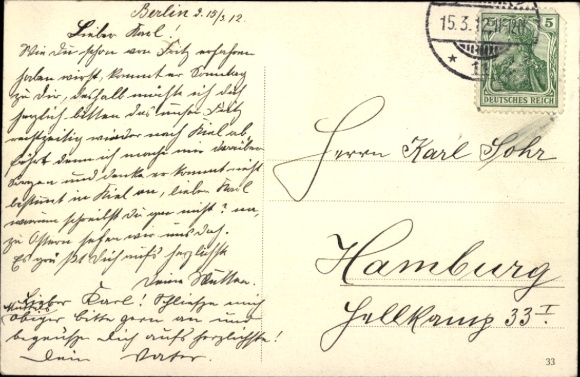 Berlin d. 15/3.12.
Lieber Karl!
Wie du schon von Fritz erfahren
haben wirst, kommt er Sonntag
zu Dir, deshalb möchte ich dich
herzlich bitten das unser Fritz
rechtzeitig wieder nach Kiel ab-
fährt denn ich mache mir darüber
Sorgen und denke er kommt nicht
bestimmt in Kiel an, lieber Karl
warum schreibst du gar nicht? na,
zu Ostern sehen wir uns doch.
Es grüßt Dich aufs herzlichste
Deine Mutter.
Lieber Karl! Schließe mich
Obiger bitte gern an und
begrüße Dich aufs herzlichste!
Dein Vater.
15.3.12
5
DEUTSCHES REICH
Herrn Karl Sohr
Hamburg
Hellkamp 33 I.
33